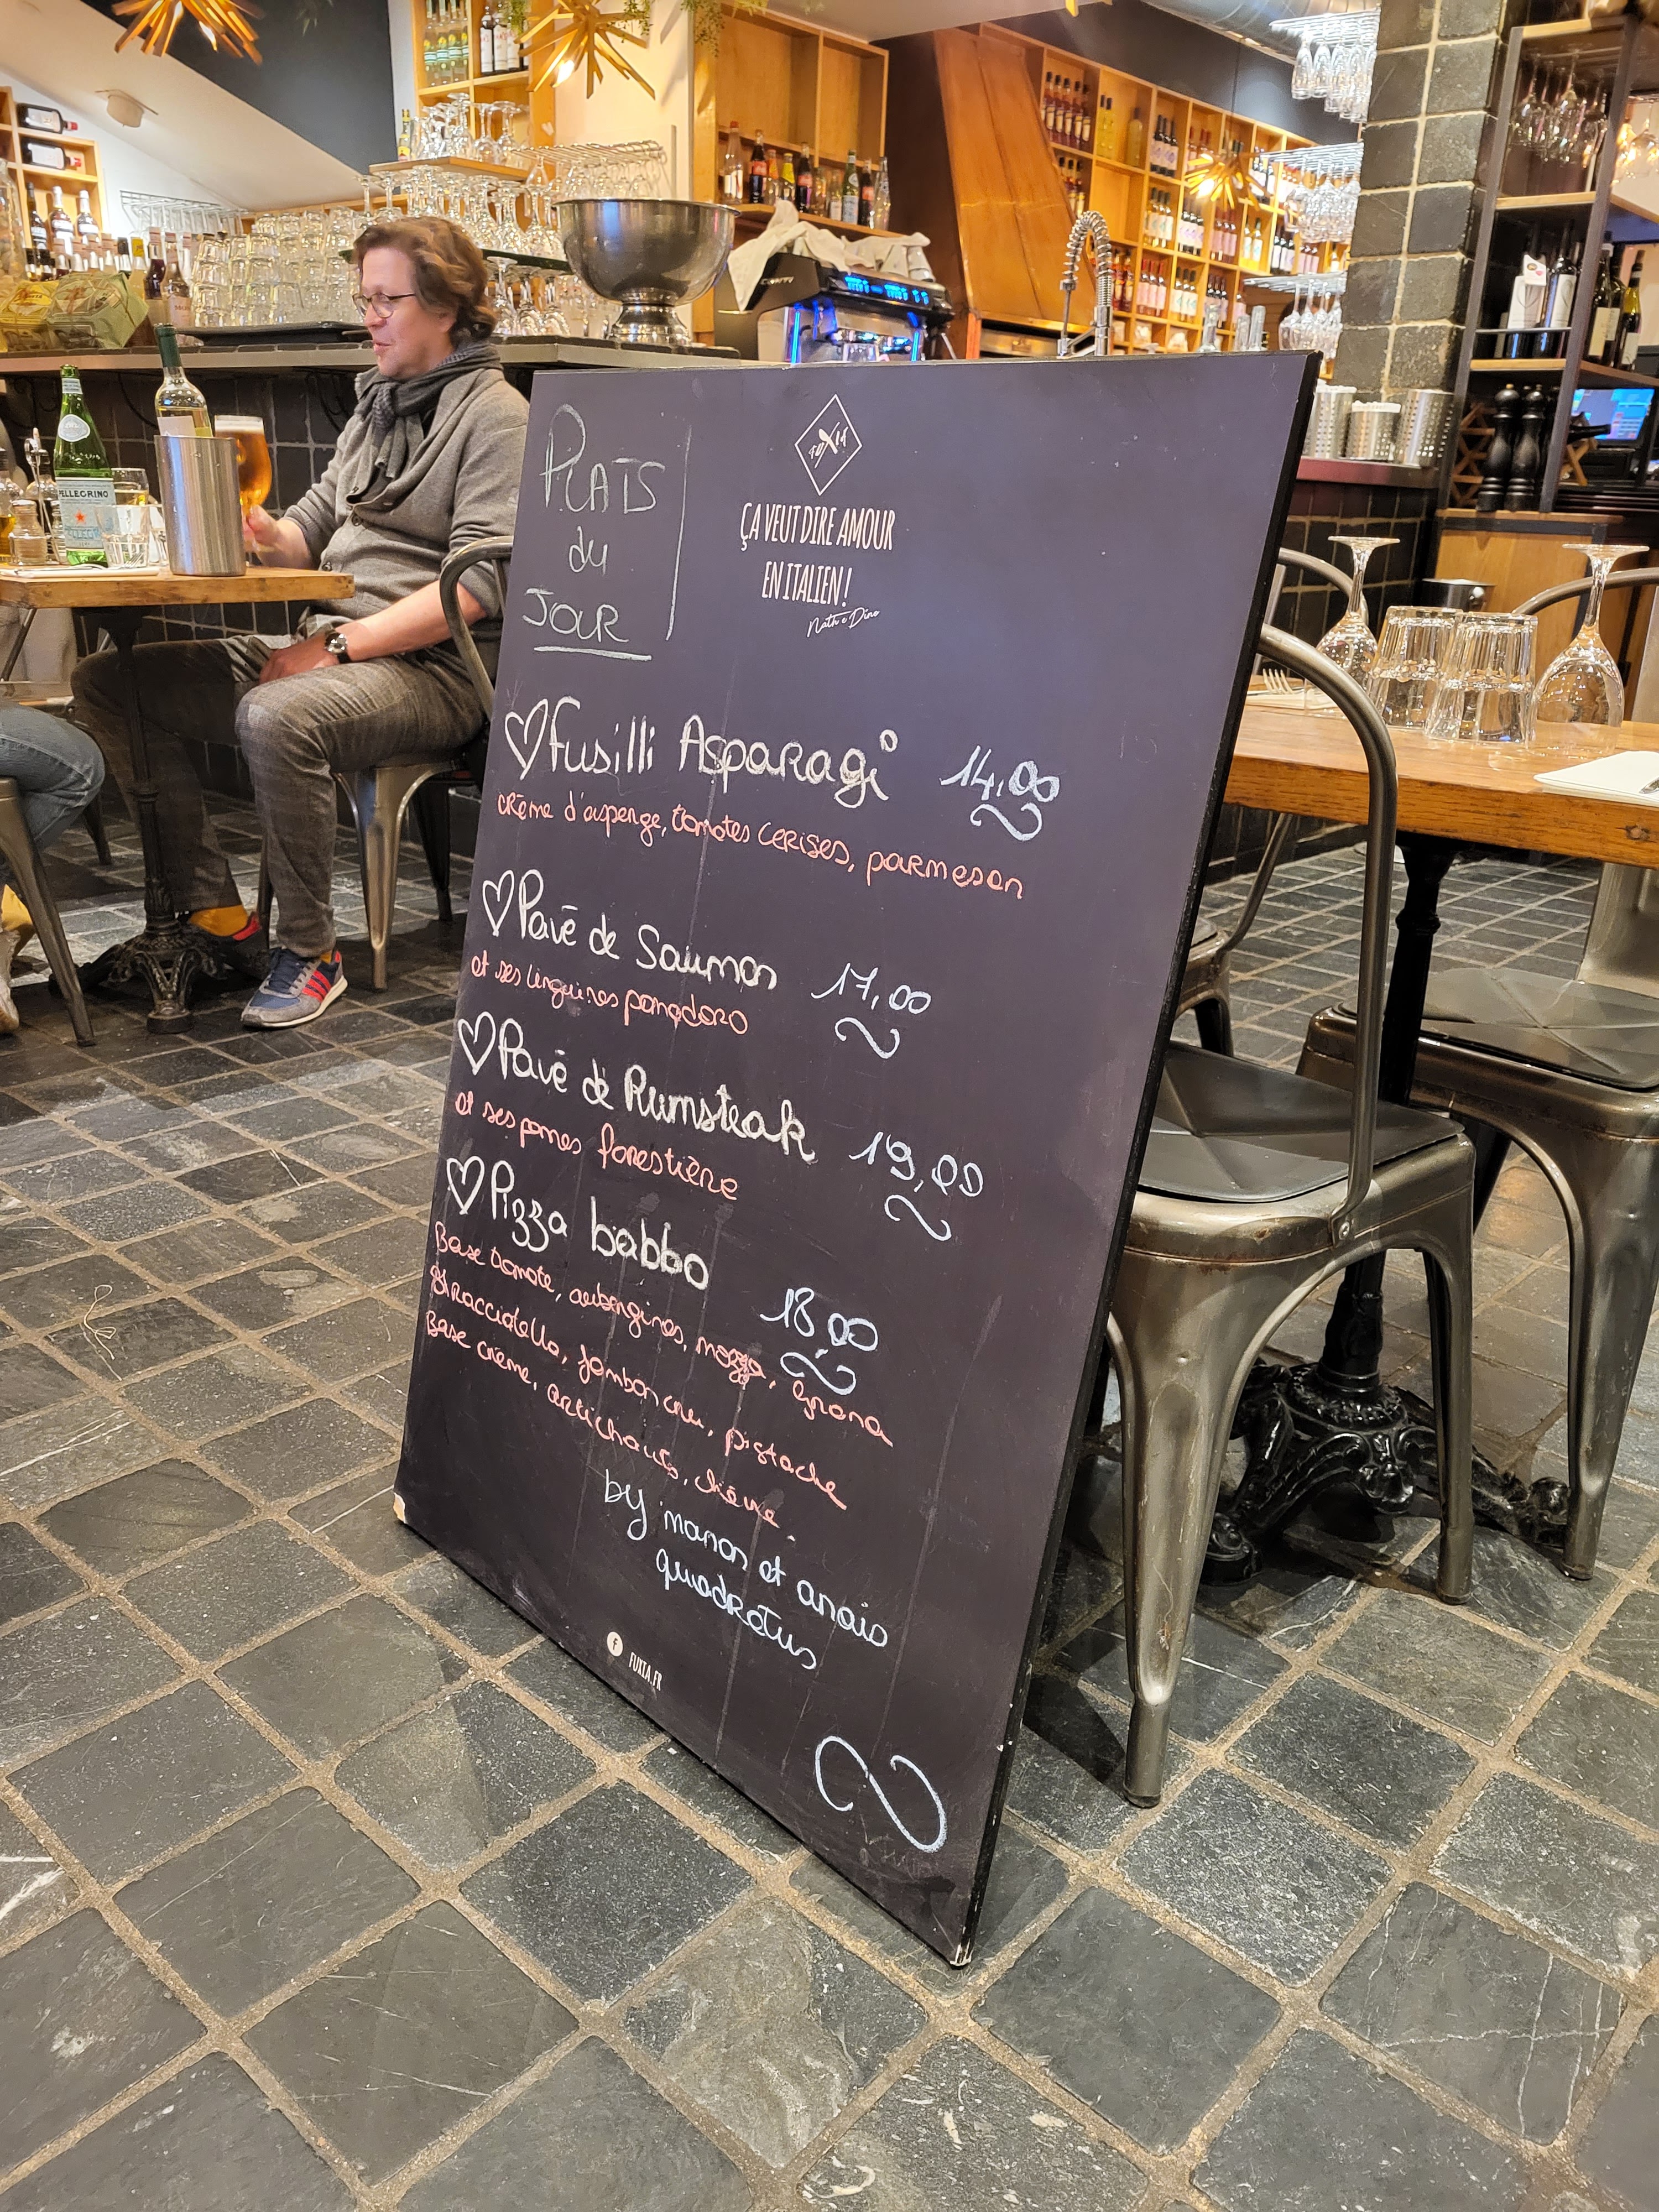 PLATS
du
JOUR
FUXIA
ÇA VEUT DIRE AMOUR
EN ITALIEN !
Nath e Dino
Fusilli Asparagi 14,00
crème d'asperge, tomates cerises, parmesan
Pavé de Saumon 17,00
et ses linguines pomodoro
Pavé de Rumsteak 19,00
et ses pomes forestière
Pizza babbo 18,00
Base tomate, aubergines, mozza, grana
Stracciatella, jambon cru, pistache
Base crème, artichauts, chèvre.
by manon et anais
quadratus
f FUXIA.FR
S.PELLEGRINO